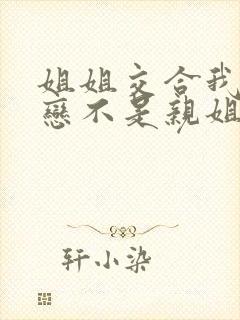 姐姐交合我
戀不是親姐
轩小染